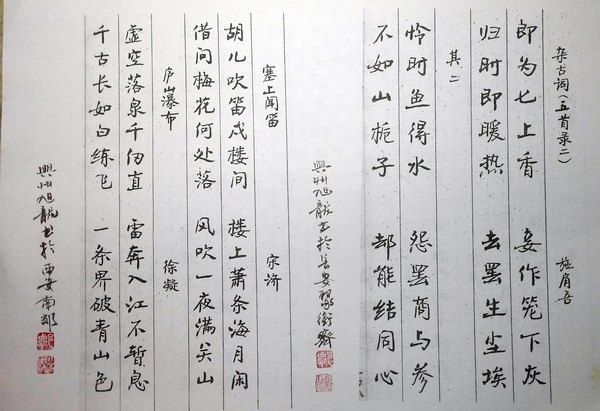 杂古词(五首录二) 施肩吾
即为七上香 妾作笼下灰
归时即暖热 去罢生尘埃
其二
怜时鱼得水 怨罢商与参
不如山栀子 却能结同心
興州旭龍书於长安翠衡齋
塞上闻笛 宋济
胡儿吹笛戍楼间 楼上萧条海月闲
借问梅花何处落 风吹一夜满关山
庐山瀑布 徐凝
虚空落泉千仞直 雷奔入江不暂息
千古长如白练飞 一条界破青山色
興州旭龍书於西安南郊